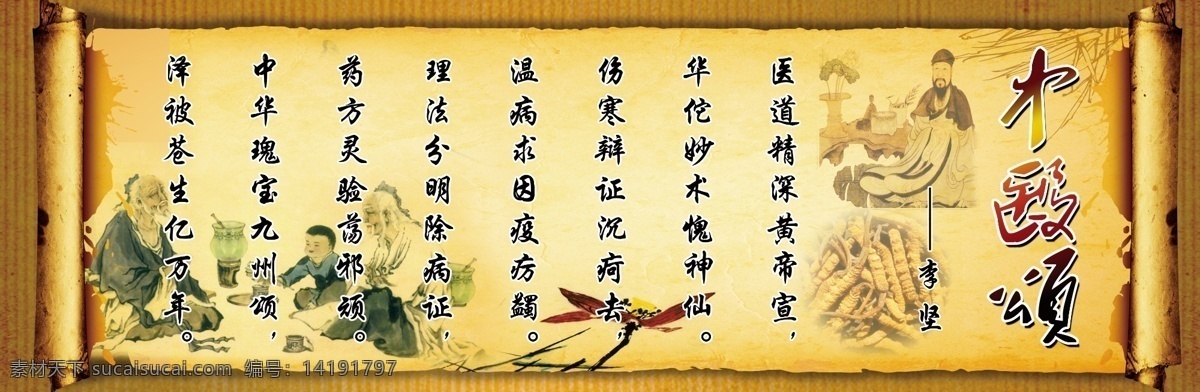 中醫頌
——李坚
医道精深黄帝宣，
华佗妙术愧神仙。
伤寒辩证沉疴去，
温病求因疫疠蠲。
理法分明除病证，
药方灵验荡邪颃。
中华瑰宝九州颂，
泽被苍生亿万年。
素材天下 sucaisucai.com 编号：14191797